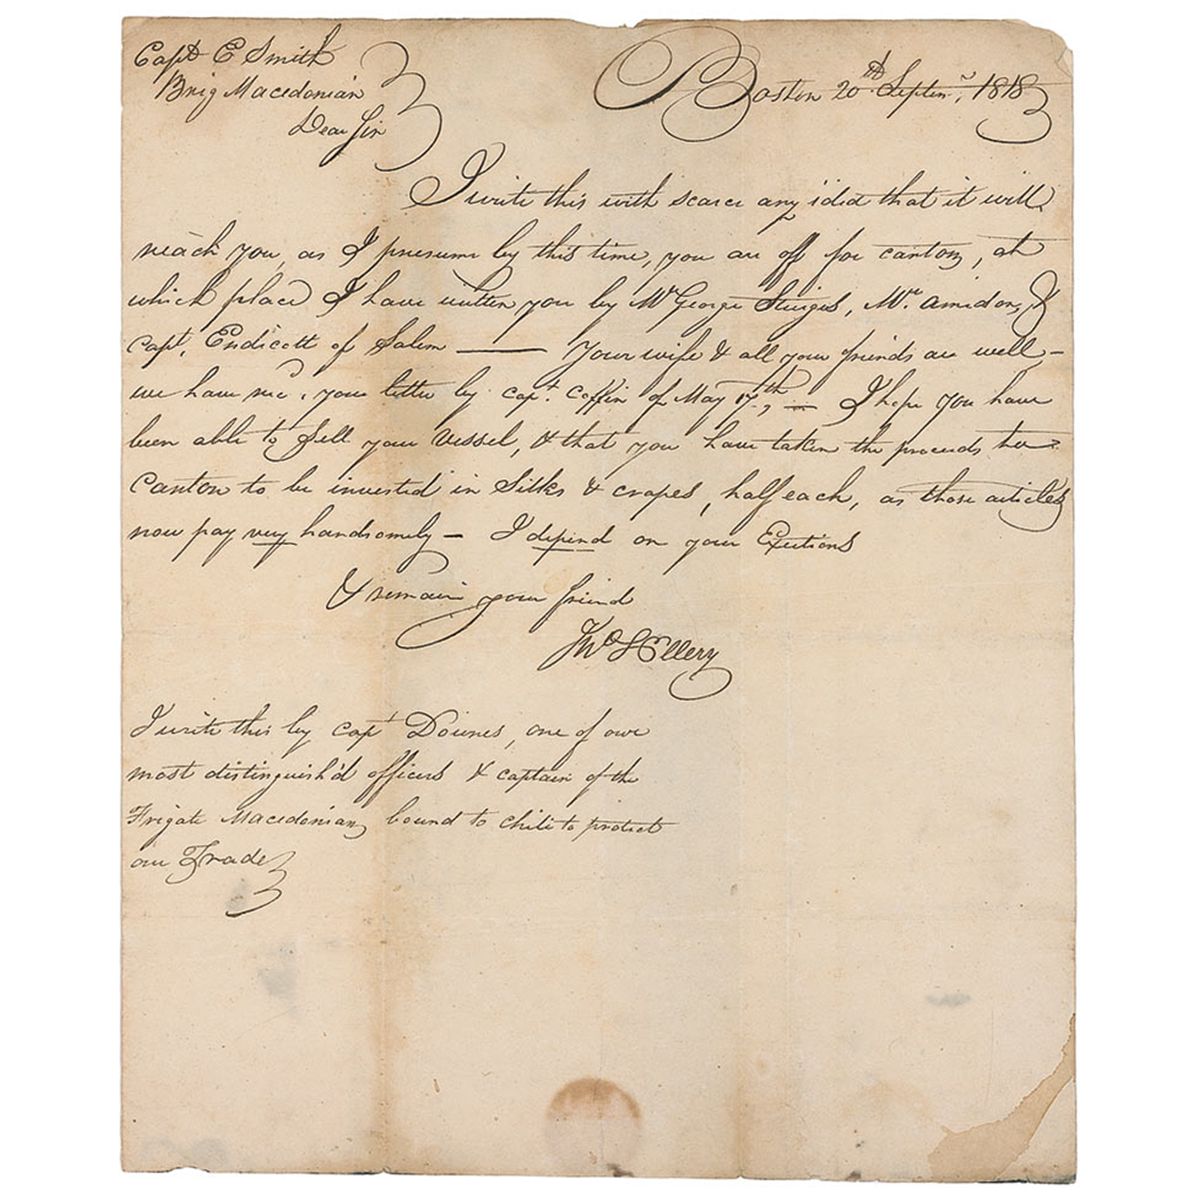 Capt E Smith
Brig Macedonian
Dear Sir
Boston 20th Septemr, 1818
I write this with scarce any idea that it will
reach you, as I presume by this time, you are off for canton, at
which place I have written you by Mr George Sturgis, Mr. Amidon, &
Capt. Endicott of Salem — Your wife & all your friends are well —
we have rec'd. your letter by capt. Coffin of May 17th, — I hope you have
been able to Sell your Vessel, & that you have taken the proceeds to
Canton to be invested in Silks & crapes, half each, as those articles
now pay very handsomely — I depend on your Exertions
& remain your friend
Jno S Ellery
I write this by capt Downes, one of our
most distinguish'd officers & captain of the
Frigate Macedonian, bound to chili to protect
our Trade